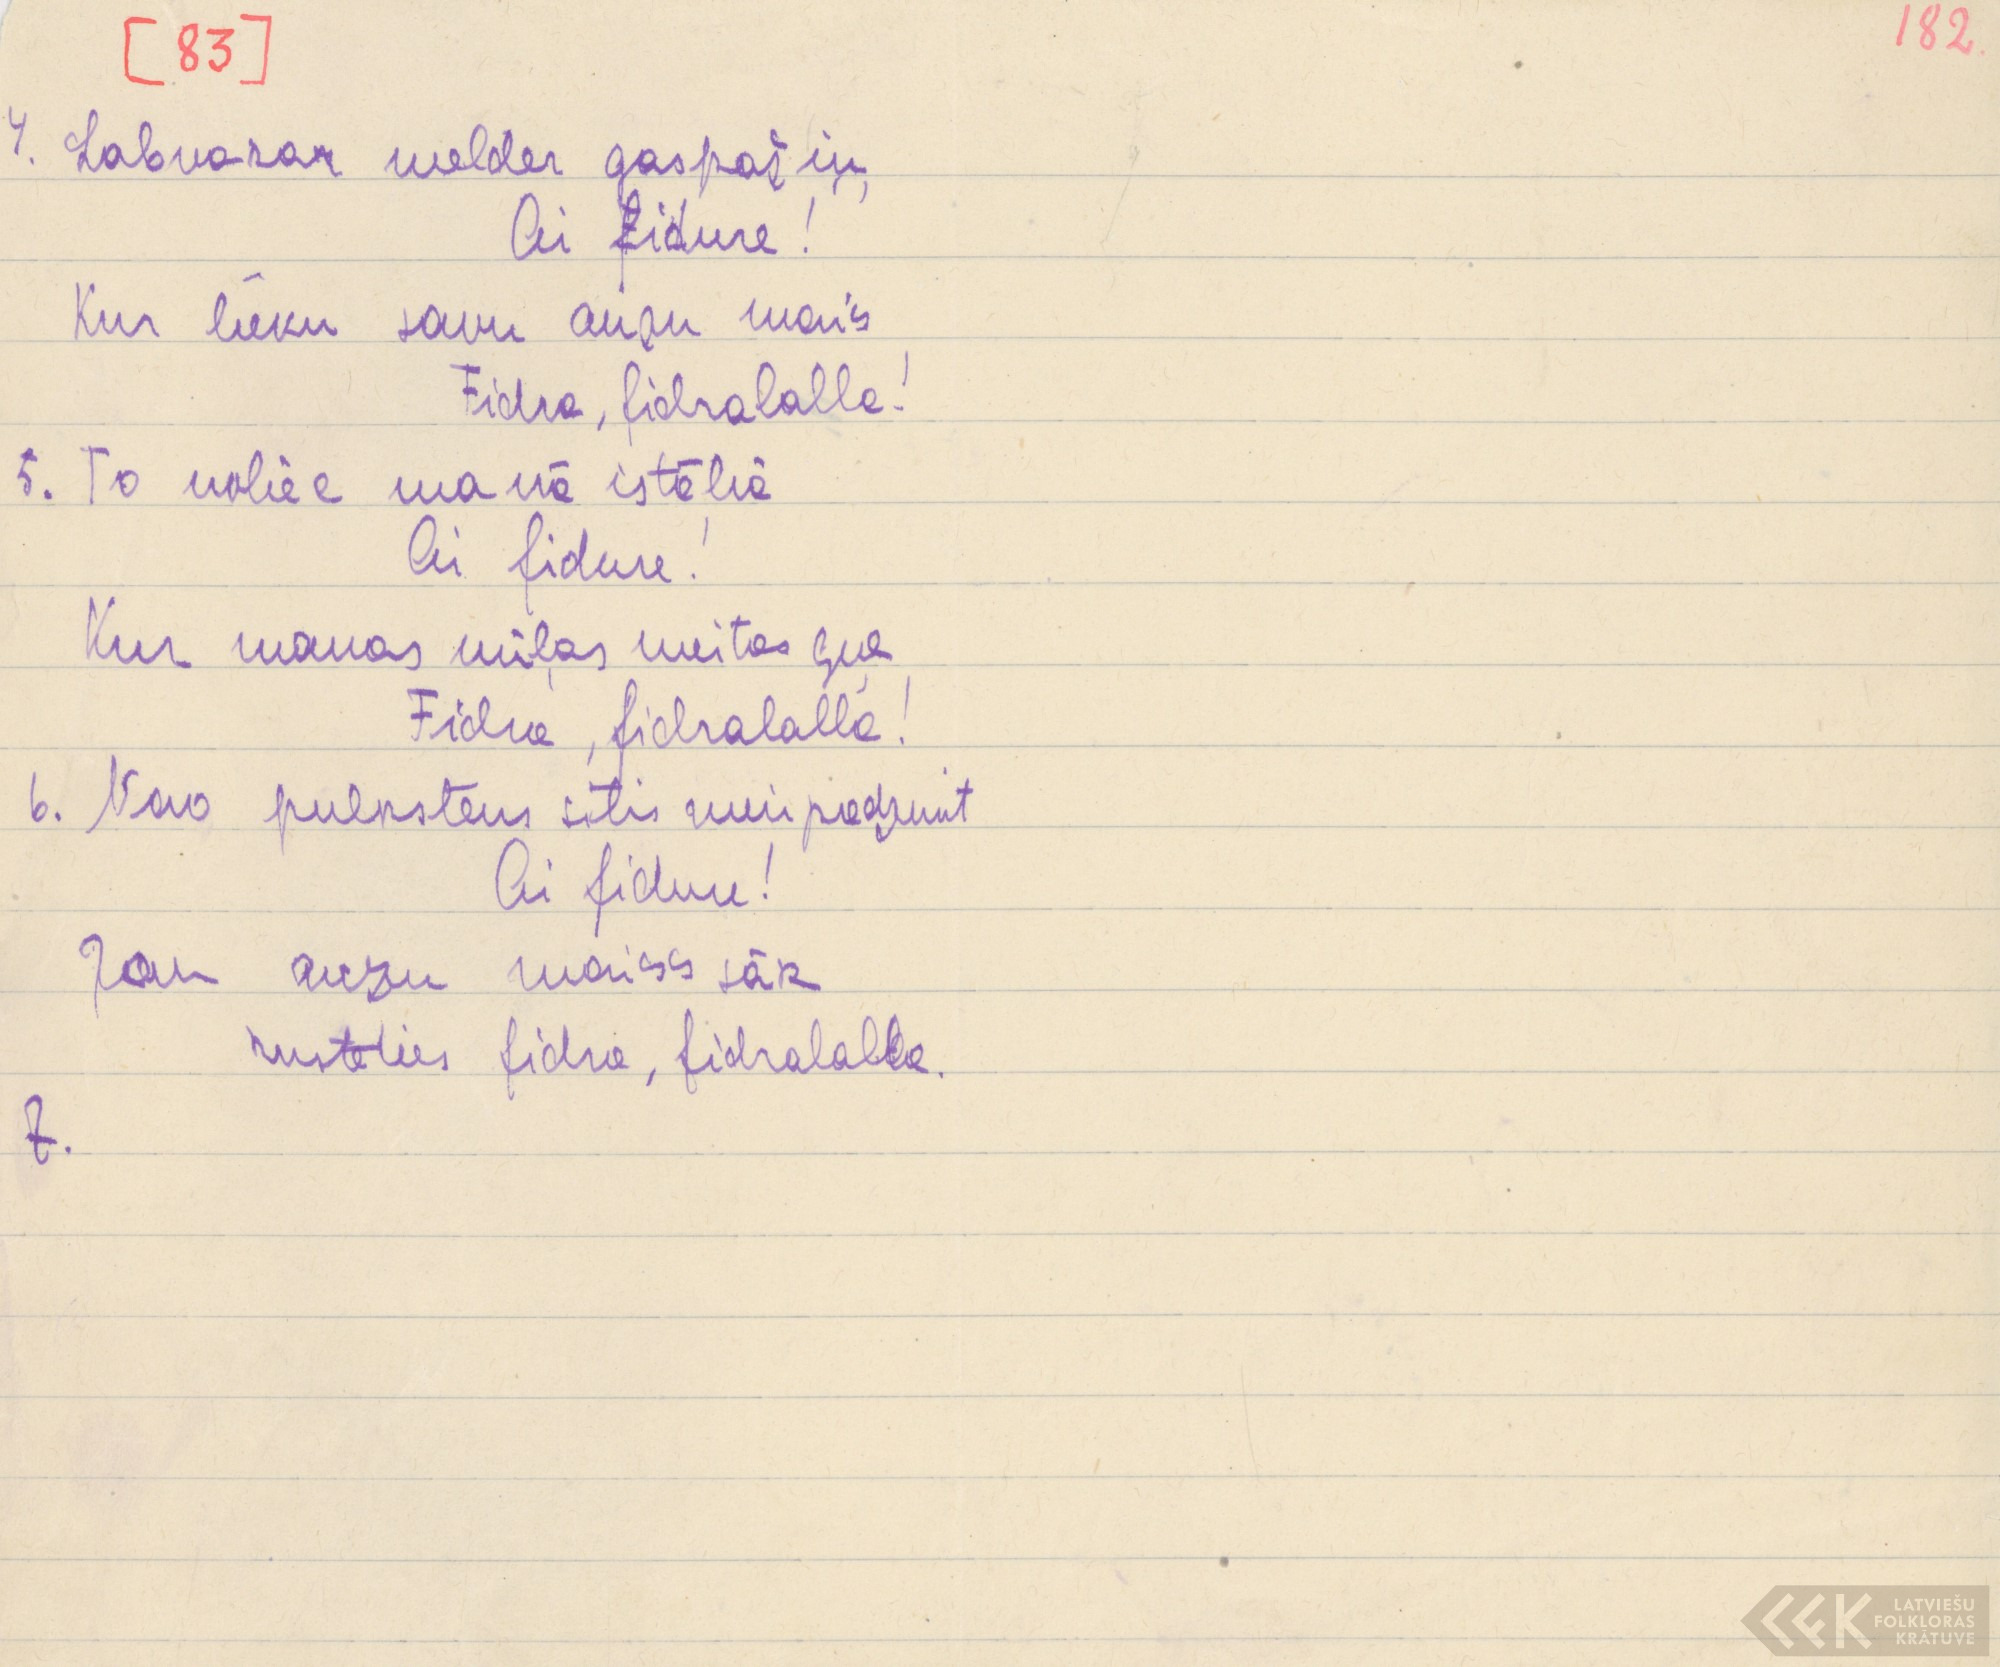 [83]
182.
4. Labvakar melder gaspažiņ,
Ai fidure!
Kur likšu savu auzu mais
Fidra, fidralalla!
5. To noliec manā istēliā
Ai fidure!
Kur manas mīļas meitas guļ
Fidra, fidralalla!
6. Nav pulkstens sitis
Ai fidure!
Jau auzu maiss sāk
kustēties fidra, fidralalla.
7.
LATVIEŠU
FOLKLORAS
KRĀTUVE